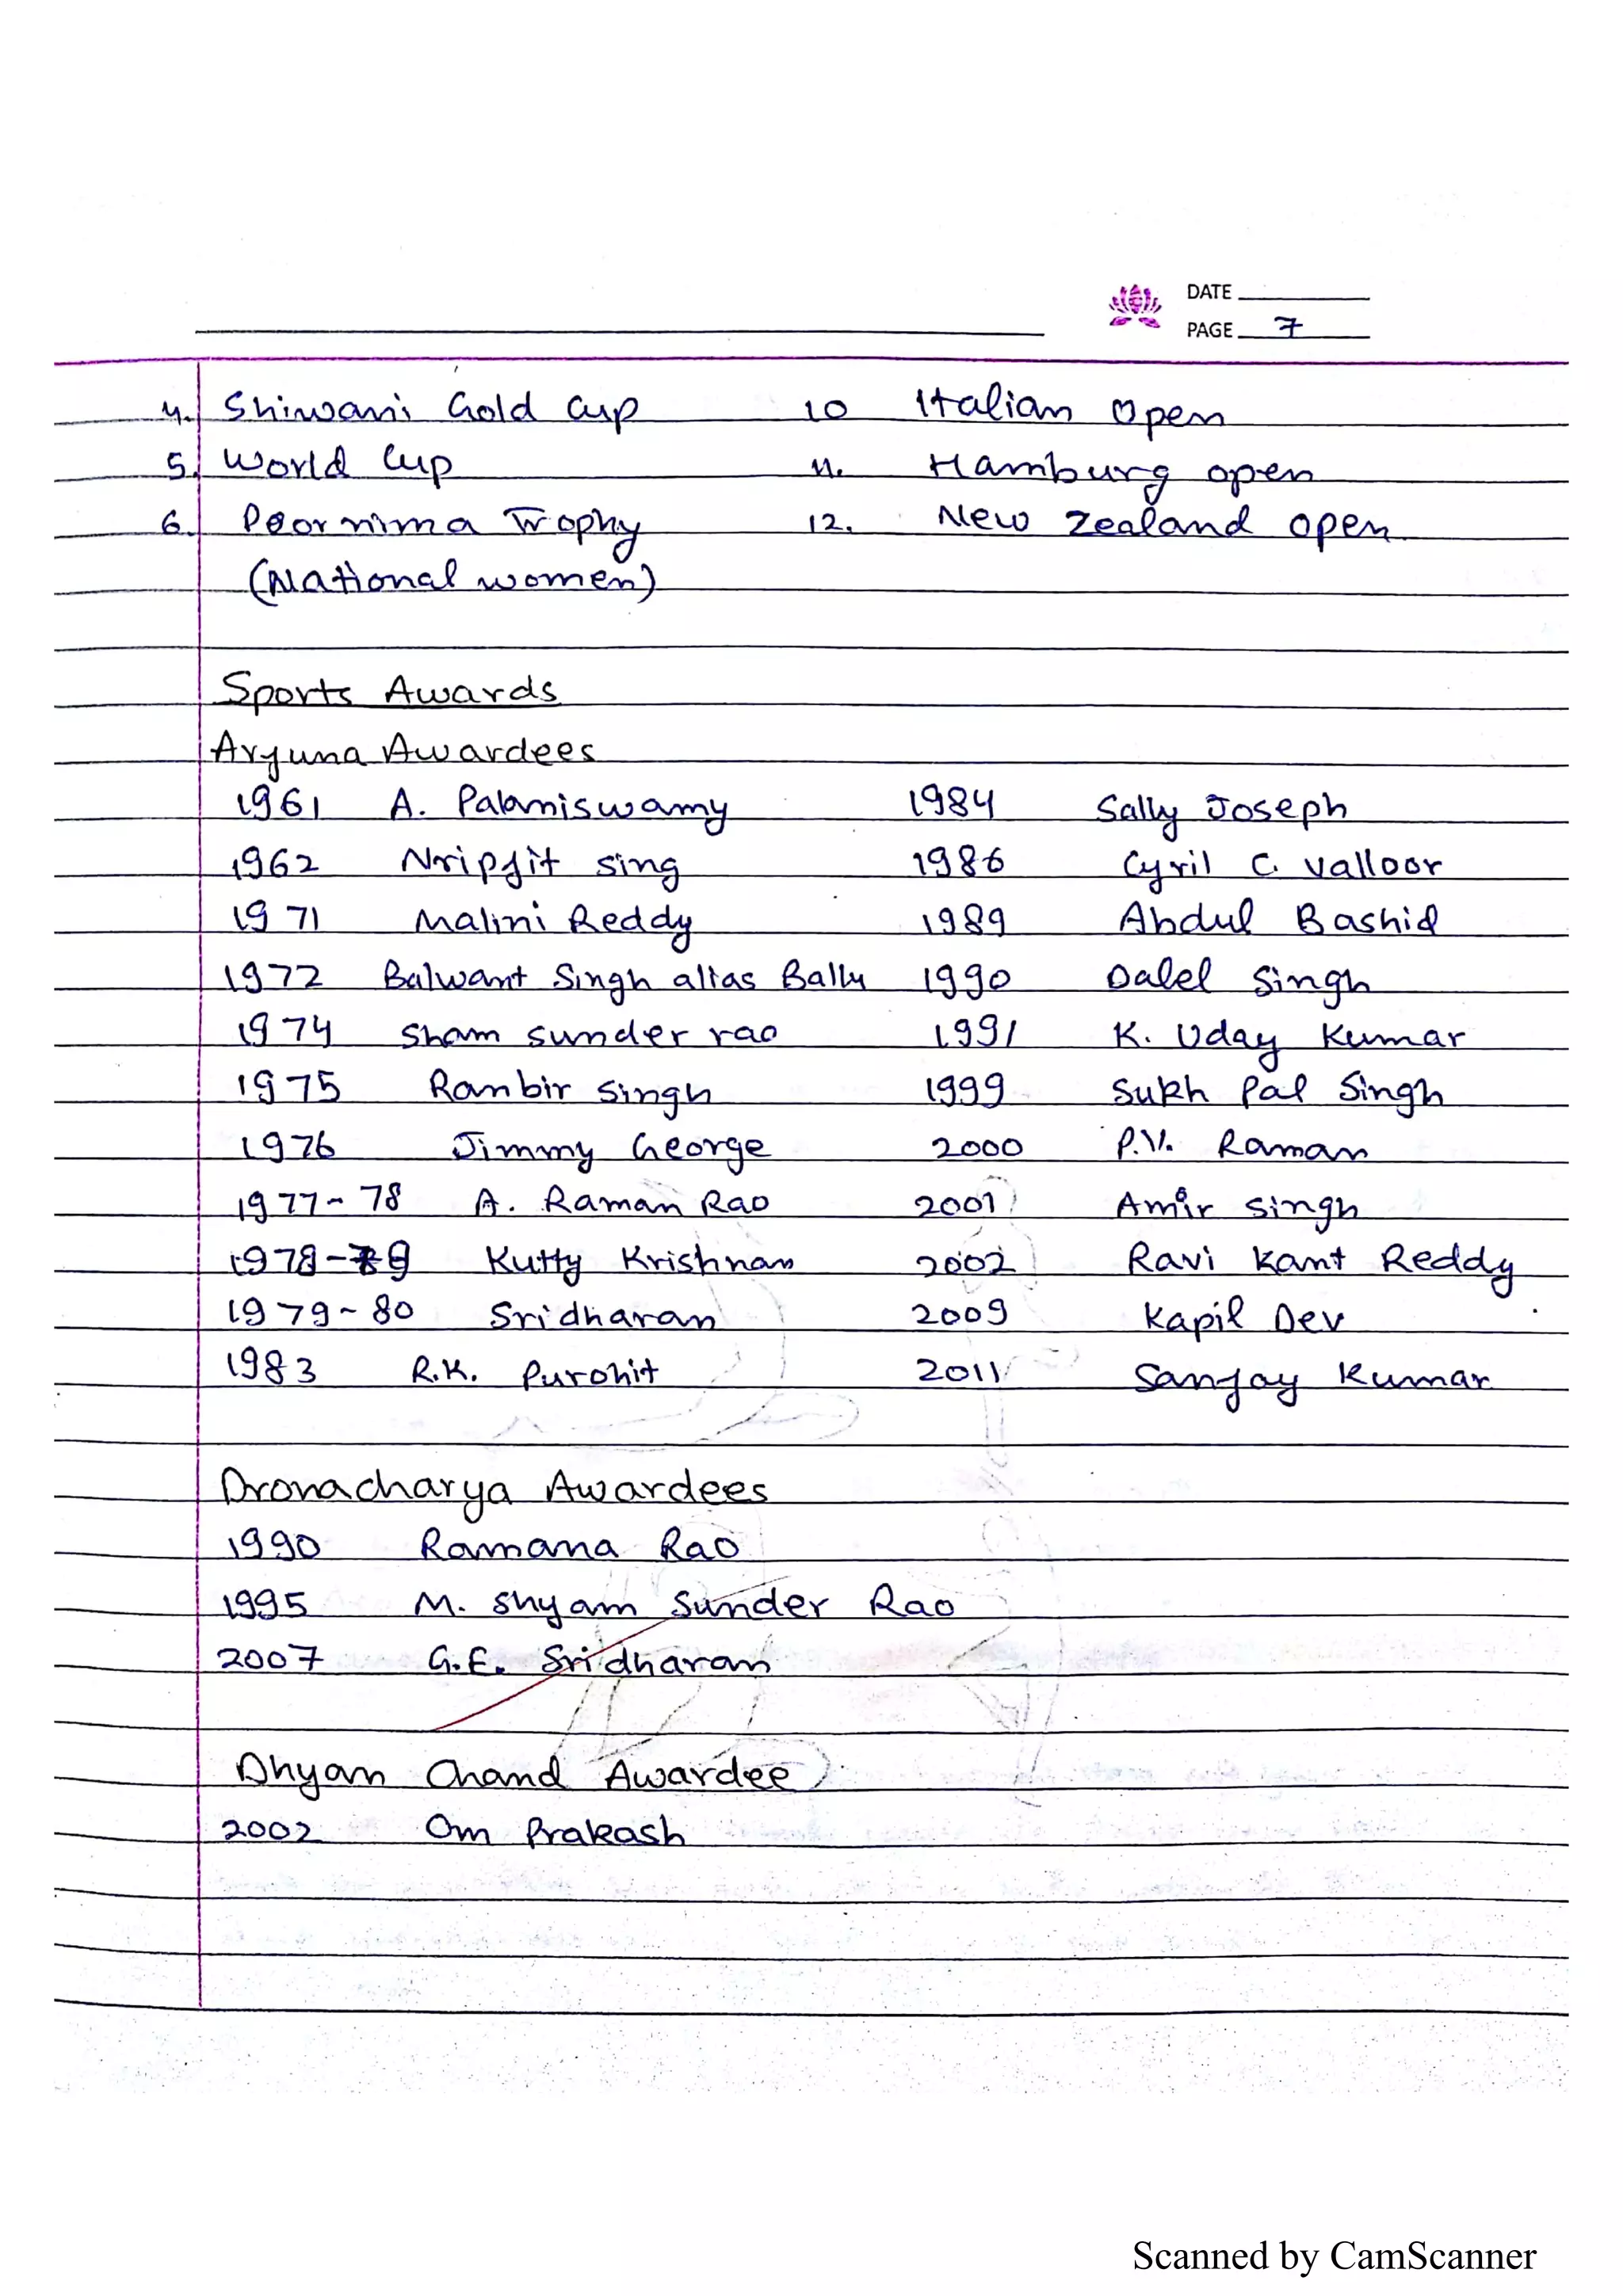 DATE
PAGE 7
4. Shiwani Gold Cup 10 Italian Open
5. World Cup 11. Hamburg open
6. Poornima Trophy 12. New Zealand open
(National women)
Sports Awards
Arjuna Awardees
1961 A. Palaniswamy 1984 Sally Joseph
1962 Nripjit sing 1986 Cyril C. Valloor
1971 Malini Reddy 1989 Abdul Bashid
1972 Balwant Singh alias Bally 1990 Dalel Singh
1974 Sham sunder rao 1991 K. Uday Kumar
1975 Ranbir Singh 1999 Sukh Pal Singh
1976 Jimmy George 2000 P.V. Raman
1977-78 A. Raman Rao 2001 Amir Singh
1978-79 Kutty Krishnan 2002 Ravi Kant Reddy
1979-80 Sridharan 2009 Kapil Dev
1983 R.K. Purohit 2011 Sanjay Kumar
Dronacharya Awardees
1990 Ramana Rao
1995 M. Shyam Sunder Rao
2007 G.E. Sridharan
Dhyan Chand Awardee
2002 Om Prakash
Scanned by CamScanner